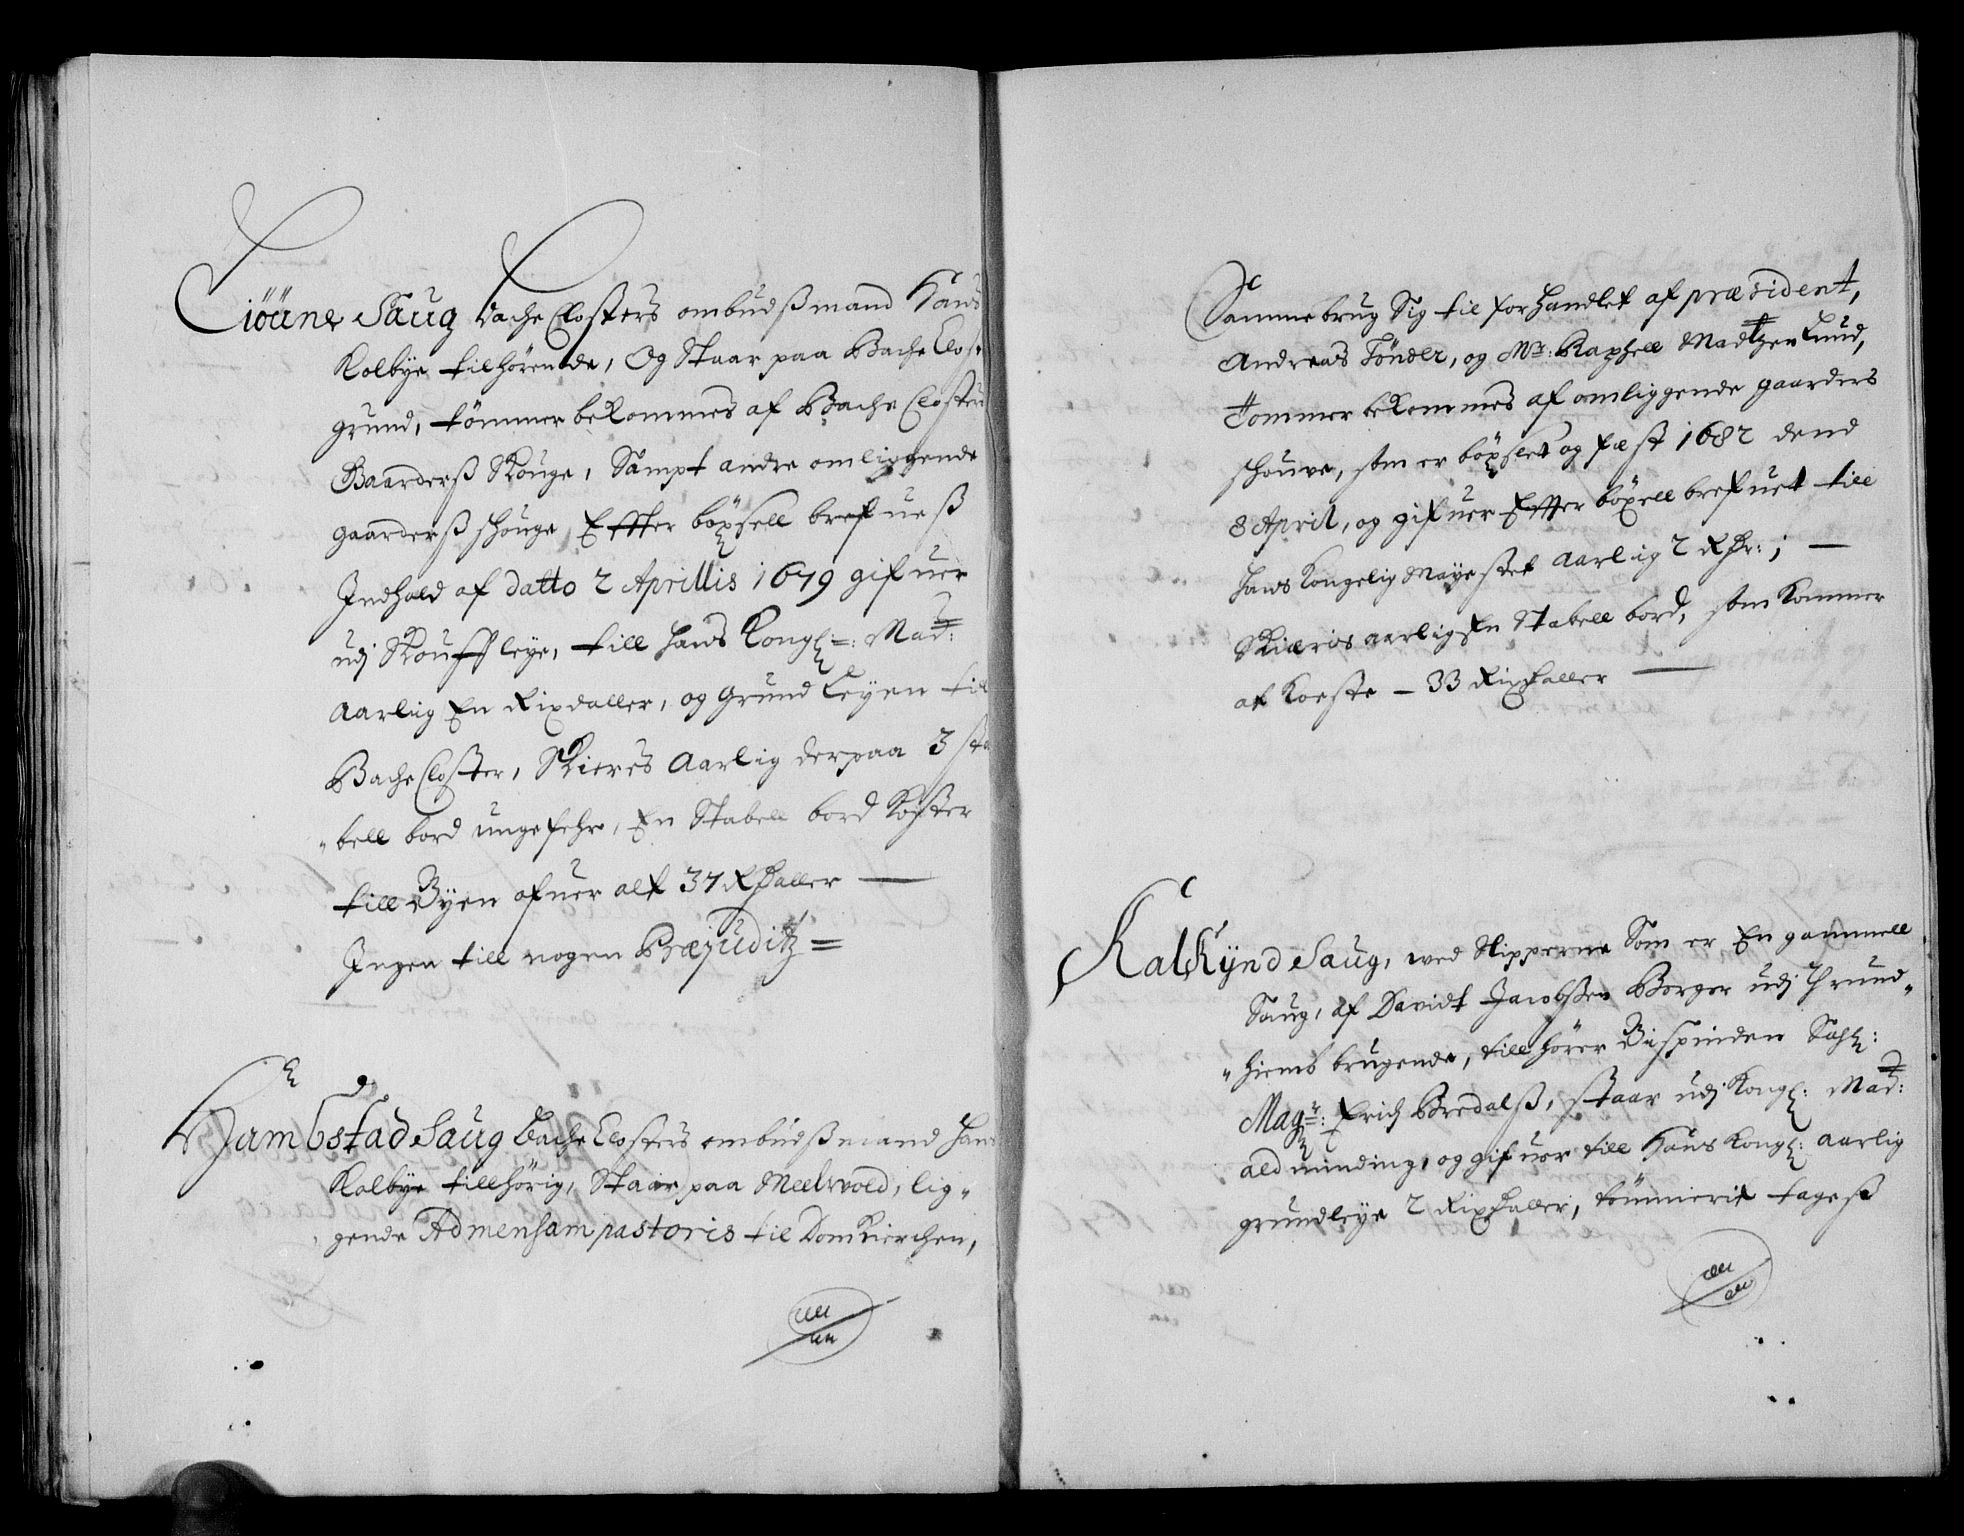 Tiöüne Saug Bache Closters ombudßmand Hans
Kolbye tilhørende, Og Staar paa Bache Clos-
grund, tömmer bekommes af Bache Closters
Gaarderß Skouge, Sampt andre omliggende
gaarderß shouge, Effter böxsell brefueß
Indhold af datto 2 Aprillis 1679 gifuer
udj Skouffleye, till hans Kongl: Maÿ:
Aarlig En Rixdaller, og Grund Leyen till
Bache Closter, Skieres Aarlig derpaa 3 sta
"bell bord ungefehr, En Stabell bord Koster
till Byen ofuer alt 37 Rdaller —
Ingen till nogen Præjuditz =
Hambstad Saug Bache Closters ombudßmand Hans
Kolbye tillhörig, Staar paa Meelvold, lig"
gende Ad mensam pastoris til Dom Kierchen,
Samme brug Sig til forhandlet af præsident,
Andreas Tönder, og Mr: Raphell Madtzen Lund,
Tommer bekommes af omliggende gaarders
shouve, som er böxslet og fæst 1682 dend
8 April, og gifuer Effter böxell brefuet till
hans Kongelig Mayestet Aarlig 2 Rdr: ; —
Skiæris aarlig En Stabell bord, som Kommer
at Koste — 33 Rixdaller —
Kalkynd Saug, wed Slipperne Som er En gammell
Saug, af Davidt Jacobßen Borger udj Thrund"
"hiemb brugende, tillhörer Bispinden Sahl:
Magr: Erich Bredalß, staar udj Kongl: Maÿ:
alminding, og gifuer till Hans Kongl: Aarlig
grundleye 2 Rixdaller, tömmerit tageß